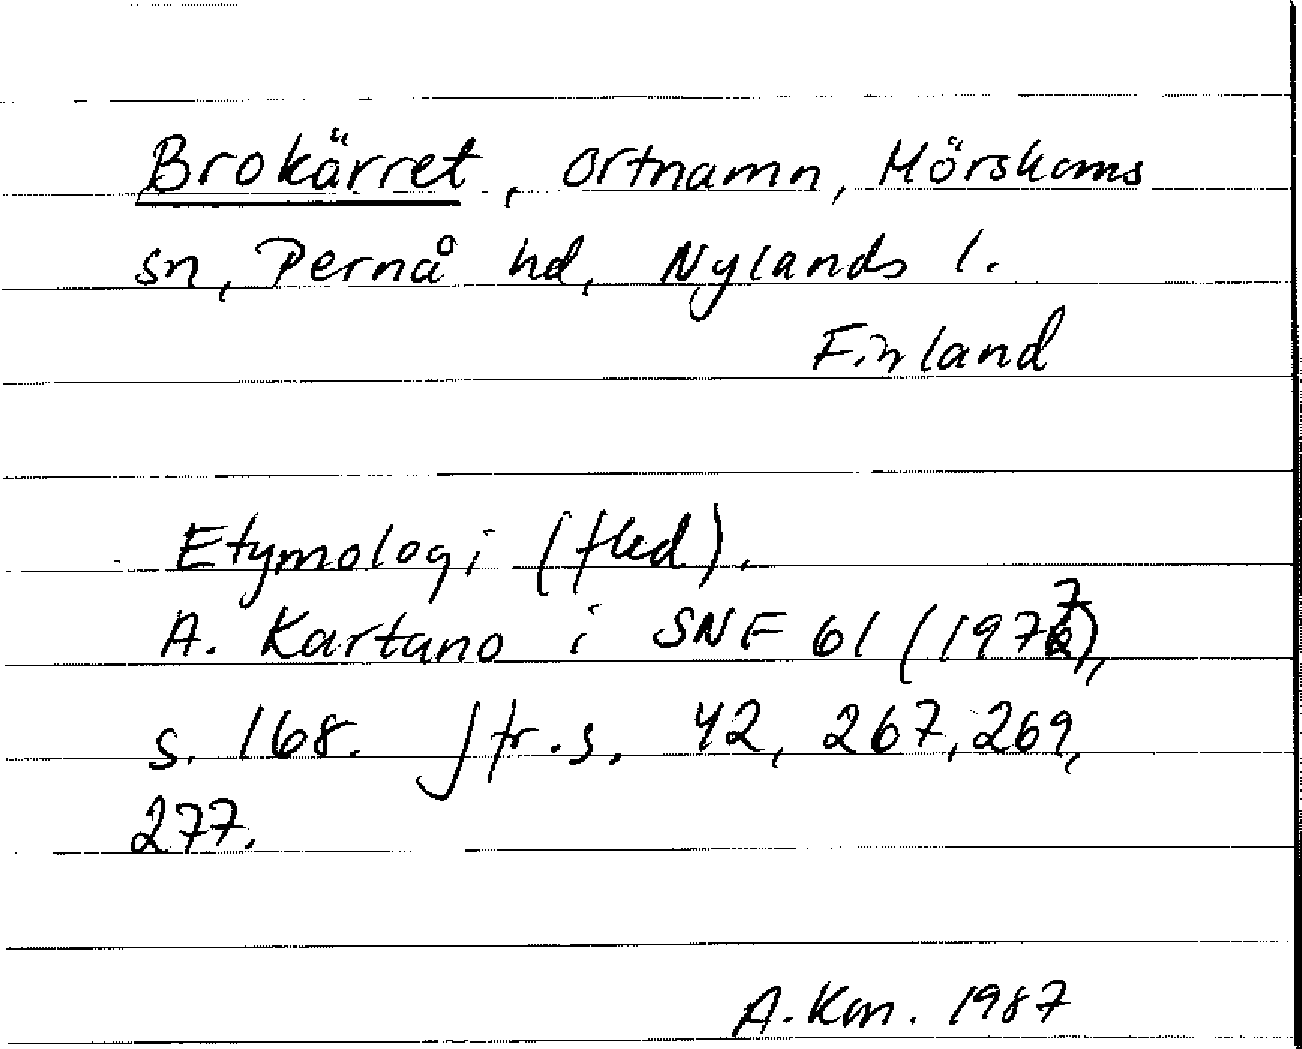 Brokärret, ortnamn, Mörskoms
sn, Pernå hd, Nylands l.
Finland
Etymologi (fled).
A. Kartano i SNF 61 (1977),
s. 168. Jfr. s. 42, 267, 269,
277.
A. Km. 1987